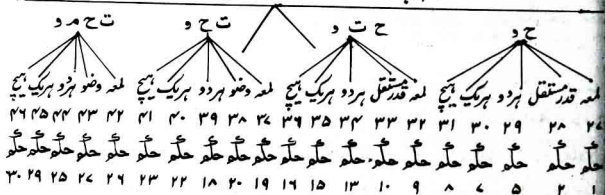 ح و ح ت و ت ح و ت ح م و
لمعہ قدر مستقل ہر دو ہریک ہیچ لمعہ قدر مستقل ہر دو ہریک ہیچ لمعہ وضو ہر دو ہریک ہیچ لمعہ وضو ہر دو ہریک ہیچ
۲۷ ۲۸ ۲۹ ۳۰ ۳۱ ۳۲ ۳۳ ۳۴ ۳۵ ۳۶ ۳۷ ۳۸ ۳۹ ۴۰ ۴۱ ۴۲ ۴۳ ۴۴ ۴۵ ۴۶
حلو حلو حلو حلو حلو حلو حلو حلو حلو حلو حلو حلو حلو حلو حلو حلو حلو حلو حلو حلو
۱ ۲ ۵ ۷ ۸ ۹ ۱۰ ۱۳ ۱۵ ۱۶ ۱۹ ۲۰ ۱۸ ۲۲ ۲۳ ۲۶ ۲۷ ۲۵ ۲۹ ۳۰